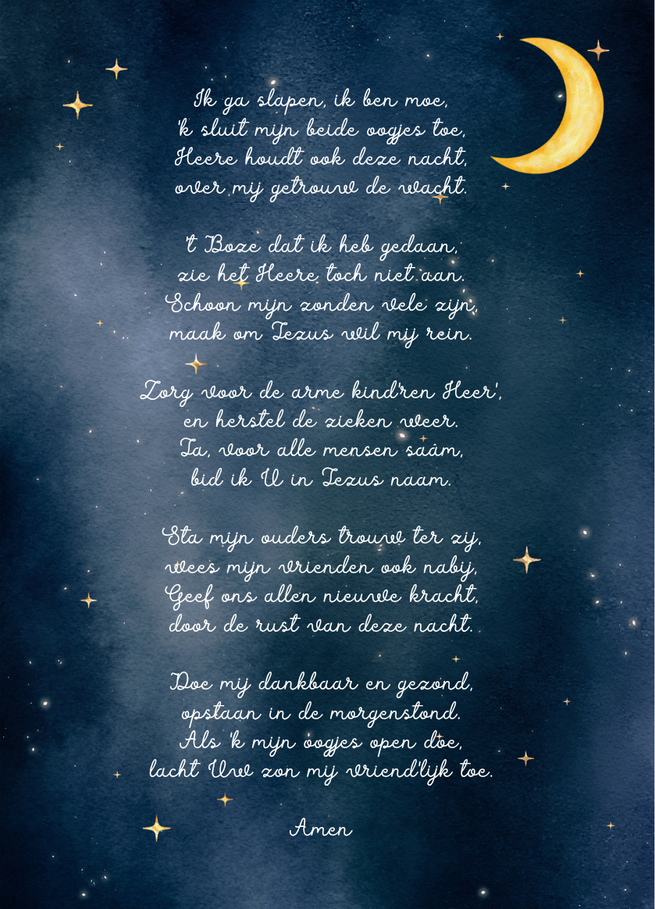 Ik ga slapen, ik ben moe,
'k sluit mijn beide oogjes toe,
Heere houdt ook deze nacht,
over mij getrouw de wacht.
't Boze dat ik heb gedaan,
zie het Heere toch niet aan.
Schoon mijn zonden vele zijn,
maak om Jezus wil mij rein.
Zorg voor de arme kind'ren Heer',
en herstel de zieken weer.
Ja, voor alle mensen saâm,
bid ik U in Jezus naam.
Sta mijn ouders trouw ter zij,
wees mijn vrienden ook nabij,
Geef ons allen nieuwe kracht,
door de rust van deze nacht.
Doe mij dankbaar en gezond,
opstaan in de morgenstond.
Als 'k mijn oogjes open doe,
lacht Uw zon mij vriend'lijk toe.
Amen